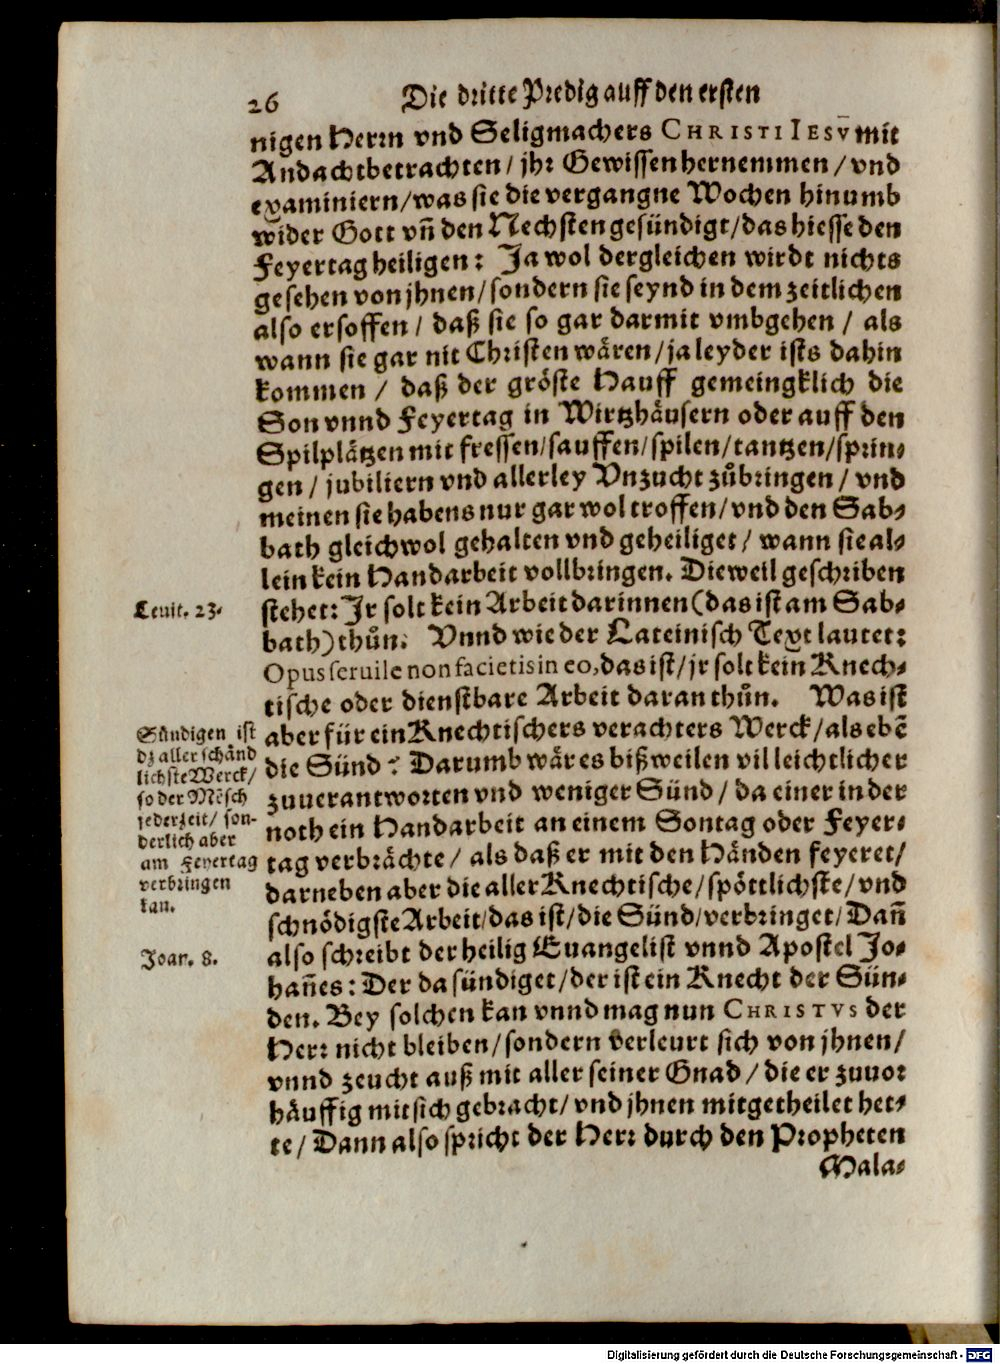 26 Die dritte Predig auff den ersten
nigen Herrn vnd Seligmachers CHRISTI IESV mit
Andacht betrachten / jhr Gewissen hernemmen / vnd
examiniern / was sie die vergangne Wochen hinumb
wider Gott vñ den Nechsten gesündigt / das hiesse den
Feyertag heiligen: Ja wol dergleichen wirdt nichts
gesehen von jhnen / sondern sie seynd in dem zeitlichen
also ersoffen / daß sie so gar darmit vmbgehen / als
wann sie gar nit Christen wären / ja leyder ists dahin
kommen / daß der gröste Hauff gemeingklich die
Son vnnd Feyertag in Wirtzhäusern oder auff den
Spilplätzen mit fressen / sauffen / spilen / tantzen / sprin⸗
gen / jubiliern vnd allerley Vnzucht zůbringen / vnd
meinen sie habens nur gar wol troffen / vnd den Sab⸗
bath gleichwol gehalten vnd geheiliget / wann sie al⸗
lein kein Handarbeit vollbringen. Dieweil geschriben
Leuit. 23.
stehet: Jr solt kein Arbeit darinnen (das ist am Sab⸗
bath) thůn. Vnnd wie der Lateinisch Text lautet:
Opus seruile non facietis in eo, das ist / jr solt kein Knech⸗
tische oder dienstbare Arbeit daran thůn. Was ist
Sündigen ist
dz aller schänd
lichste Werck /
so der Mẽsch
jederzeit / son-
derlich aber
am Feyertag
verbringen
kan.
aber für ein Knechtischers verachters Werck / als ebẽ
die Sünd? Darumb wär es bißweilen vil leichtlicher
zuuerantworten vnd weniger Sünd / da einer in der
noth ein Handarbeit an einem Sontag oder Feyer⸗
tag verbrächte / als daß er mit den Händen feyeret /
darneben aber die aller Knechtische / spöttlichste / vnd
schnödigste Arbeit / das ist / die Sünd / verbringet / Dañ
Joan. 8.
also schreibt der heilig Euangelist vnnd Apostel Jo⸗
hañes: Der da sündiget / der ist ein Knecht der Sün⸗
den. Bey solchen kan vnnd mag nun CHRISTVS der
Herr nicht bleiben / sondern verleurt sich von jhnen /
vnnd zeucht auß mit aller seiner Gnad / die er zuuor
häuffig mit sich gebracht / vnd jhnen mitgetheilet het⸗
te / Dann also spricht der Herr durch den Propheten
Mala⸗
Digitalisierung gefördert durch die Deutsche Forschungsgemeinschaft - DFG